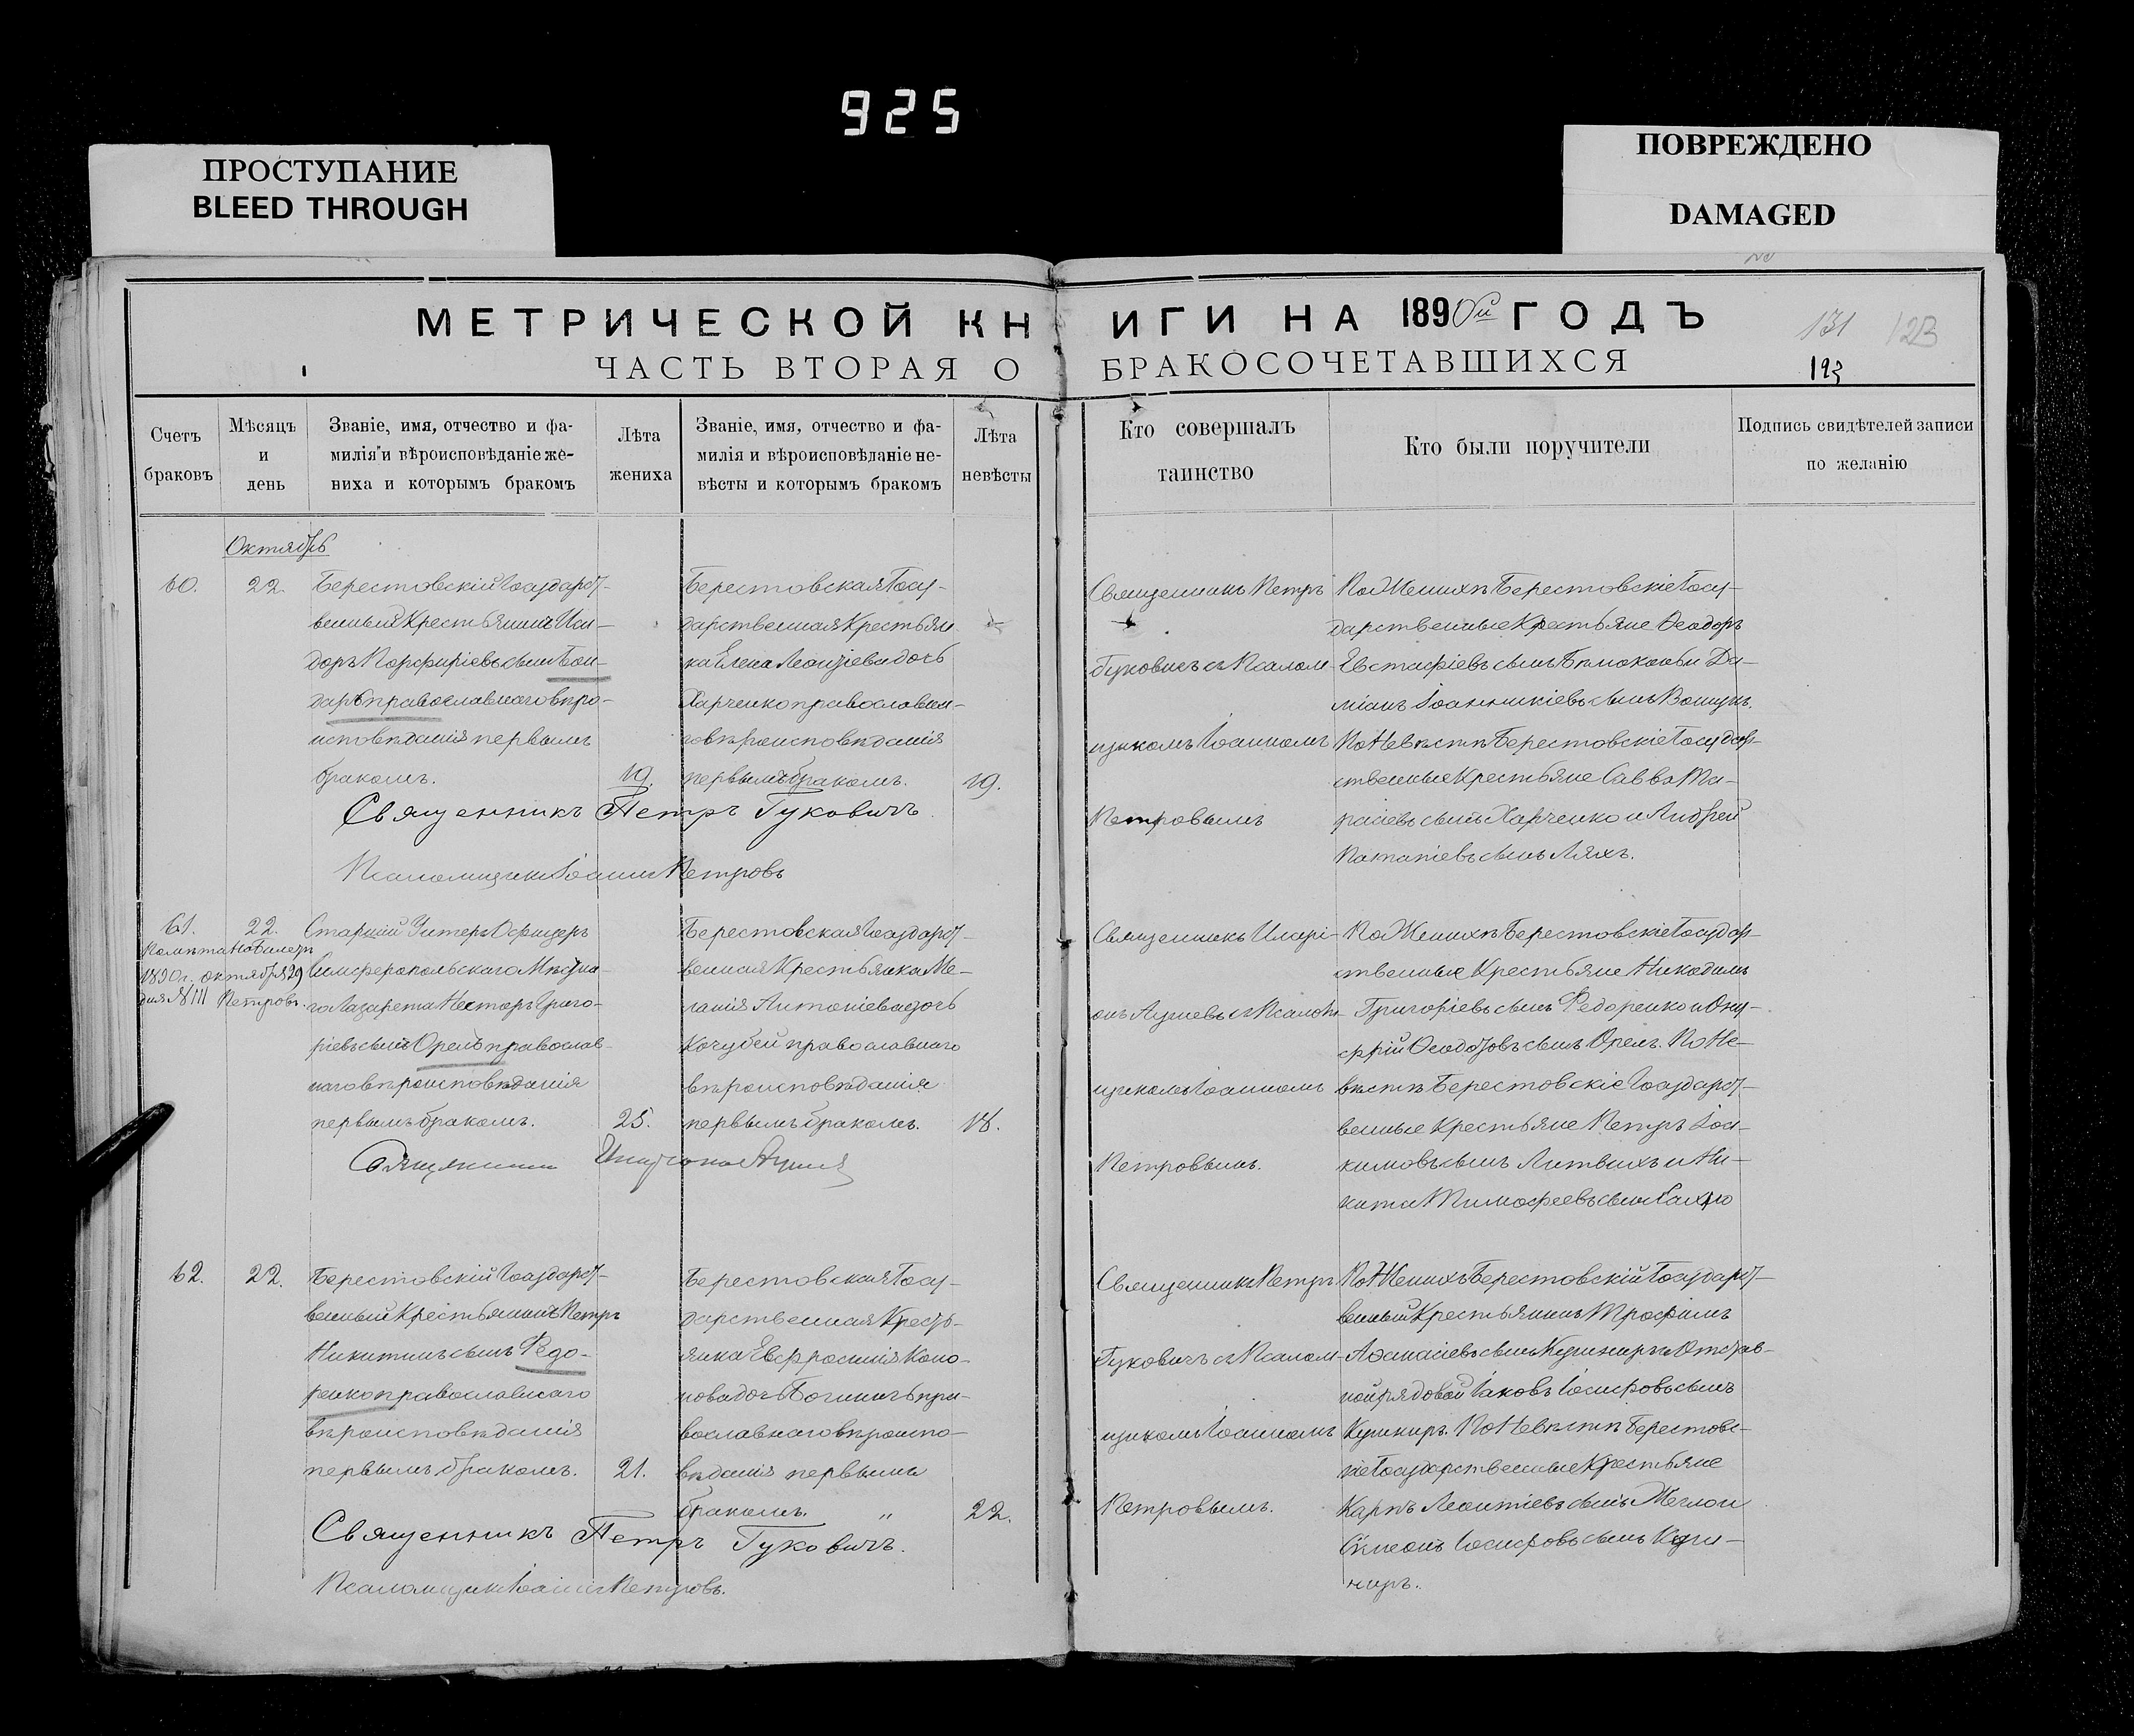 925
ПРОСТУПАНИЕ
BLEED THROUGH
ПОВРЕЖДЕНО
DAMAGED
МЕТРИЧЕСКОЙ КНИГИ НА 1890ый ГОДЪ
131 123
ЧАСТЬ ВТОРАЯ О БРАКОСОЧЕТАВШИХСЯ
123
Счетъ
браковъ
Мѣсяцъ
и
день
Званіе, имя, отчество и фа-
милія и вѣроисповѣданіе же-
ниха и которымъ бракомъ
Лѣта
жениха
Званіе, имя, отчество и фа-
милія и вѣроисповѣданіе не-
вѣсты и которымъ бракомъ
Лѣта
невѣсты
Кто совершалъ
таинство
Кто были поручители
Подпись свидѣтелей записи
по желанію
Октябрь
60.
22.
Берестовскій Государст-
венный Крестьянинъ Иси-
доръ Порфиріевъ сынъ Бон-
дарь православнаго вѣро-
исповѣданія первымъ
бракомъ.
19.
Берестовская Госу-
дарственная Крестьян
ка Елена Леонтіева дочь
Харченко православна-
го вѣроисповѣданія
первымъ бракомъ.
19.
Священникъ Петръ
Гуковичъ съ Псалом-
щикомъ Іоанномъ
Петровымъ
По Женихѣ Берестовскіе Госу-
дарственные Крестьяне Ѳеодоръ
Евстафіевъ сынъ и Да-
міанъ Іоанникіевъ сынъ
По Невѣстѣ Берестовскіе Государ-
ственные Крестьяне Савва Та-
расіевъ сынъ Харченко и Андрей
Потапіевъ сынъ Ляхъ.
Священникъ Петръ Гуковичъ
Псаломщикъ Іоаннъ Петровъ
61.
22.
Помѣта на билетѣ
1890 г. октября 29
дня № 111 Петровъ.
Старшій Унтеръ Офицеръ
Симферопольскаго Мѣстна-
го Лазарета Несторъ Григо-
ріевъ сынъ Орелъ православ-
наго вѣроисповѣданія
первымъ бракомъ.
25.
Берестовская Государст-
венная Крестьянка Ме-
ланія Антоніева дочь
Кочубей православнаго
вѣроисповѣданія
первымъ бракомъ.
18.
Священникъ Иларі-
онъ съ Псалом-
щикомъ Іоанномъ
Петровымъ.
По Женихѣ Берестовскіе Государ-
ственные Крестьяне Никодимъ
Григоріевъ сынъ Федоренко и Ону-
фрій Ѳеодотовъ сынъ Орелъ. По Не-
вѣстѣ Берестовскіе Государст-
венные Крестьяне Петръ Іоа-
кимовъ сынъ Литвинъ и Ни-
кита Тимофеевъ сынъ
Священникъ
62.
22.
Берестовскій Государст-
венный Крестьянинъ Петръ
Никитинъ сынъ Федо-
ренко православнаго
вѣроисповѣданія
первымъ бракомъ.
21.
Берестовская Госу-
дарственная Кресть-
янка Евфросинія Коно-
нова дочь пра-
вославнаго вѣроиспо-
вѣданія первымъ
бракомъ. „
22.
Священникъ Петръ
Гуковичъ съ Псалом-
щикомъ Іоанномъ
Петровымъ.
По Женихѣ Берестовскій Государст-
венный Крестьянинъ Трофимъ
Аѳанасіевъ сынъ Кушниръ и Отстав-
ной рядовой Іаковъ Іосифовъ сынъ
Кушниръ. По Невѣстѣ Берестовс-
кіе Государственные Крестьяне
Карпъ Леонтіевъ сынъ
Симеонъ Іосифовъ сынъ Куш-
ниръ.
Священникъ Петръ Гуковичъ.
Псаломщикъ Іоаннъ Петровъ.